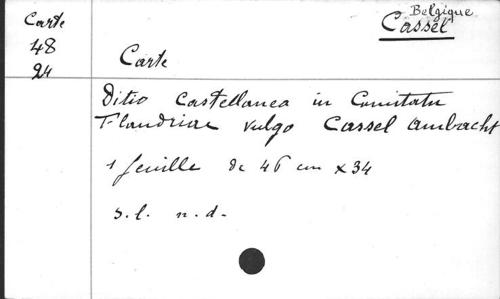 Carte
48
24
Belgique
Cassel
Carte
Ditio Castellanea in Comitatu
Flandriae vulgo Cassel ambacht
1 feuille de 46 cm x 34
s.l. n.d.